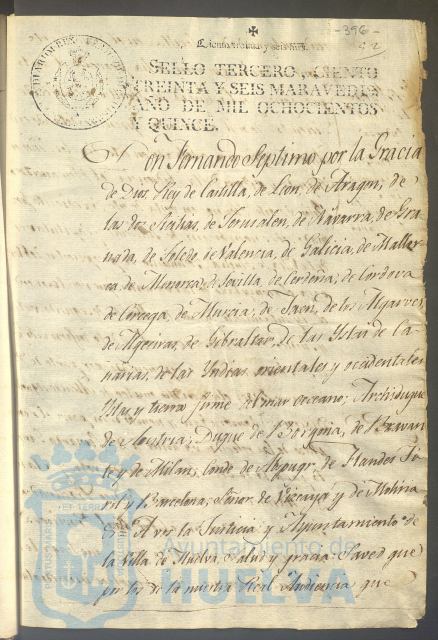 -396-
92
Ciento treinta y seis mrs.
SELLO TERCERO, CIENTO
TREINTA Y SEIS MARAVEDIS,
AÑO DE MIL OCHOCIENTOS
Y QUINCE.
Don Fernando Septimo por la Gracia
de Dios, Rey de Castilla, de Leon, de Aragon, de
las dos Sicilias, de Jerusalen, de Navarra, de Gra
nada, de Toledo, de Valencia, de Galicia, de Mallor
ca, de Menorca, de Sevilla, de Cerdeña, de Cordova
de Corcega, de Murcia, de Jaen, de los Algarves,
de Algeciras, de Gibraltar, de las Yslas de Ca-
narias, de las Yndias orientales y ocidentales
Yslas y tierra firme del mar occeano; Archiduque
de Austria; Duque de Borgoña, de Bravan
te y de Milan; Conde de Abspurg, de Flandes, Ti
rol y Barcelona; Señor de Vizcaya y de Molina
A vos la Justicia y Ayuntamiento de
la Villa de Huelva, Salud y gracia: Saved que
por los de la nuestra Real Audiencia que
Ayuntamiento de
HUELVA